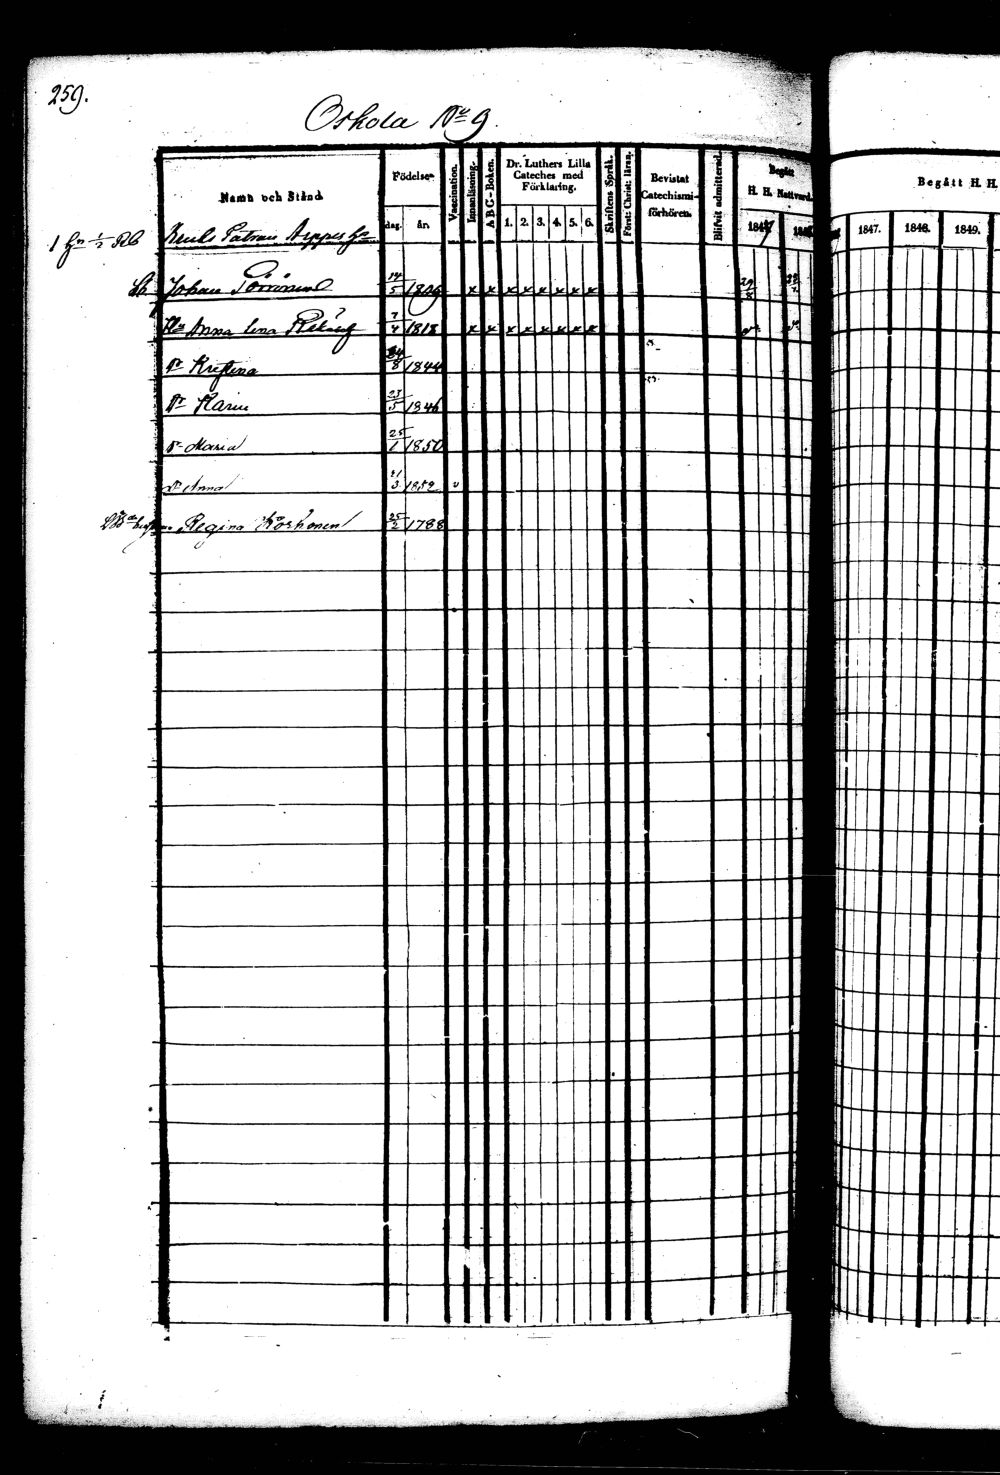 259.
Oskola No 9.
Namn och Stånd
Födelse-
dag. år.
Vaccination.
Innanläsning.
A B C-Boken.
Dr. Luthers Lilla
Cateches med
Förklaring.
1. 2. 3. 4. 5. 6.
Skriftens Språk.
Först: Christ: läran.
Bevistat
Catechismi-
förhören.
Blifvit admitterad.
Begått
H. H. Nattvard.
Begått H. H.
1847. 1848. 1849.
Johan 14/5 1809 x x x x x x x x
Anna Lena 7/4 1818 x x x x x x x x
Dr Kristina 8 1844
Dr Karin 23/5 1846
Dr Maria 25/1 1850
Dr Anna 21/3 1852 v
Regina Korhonen 25/2 1788